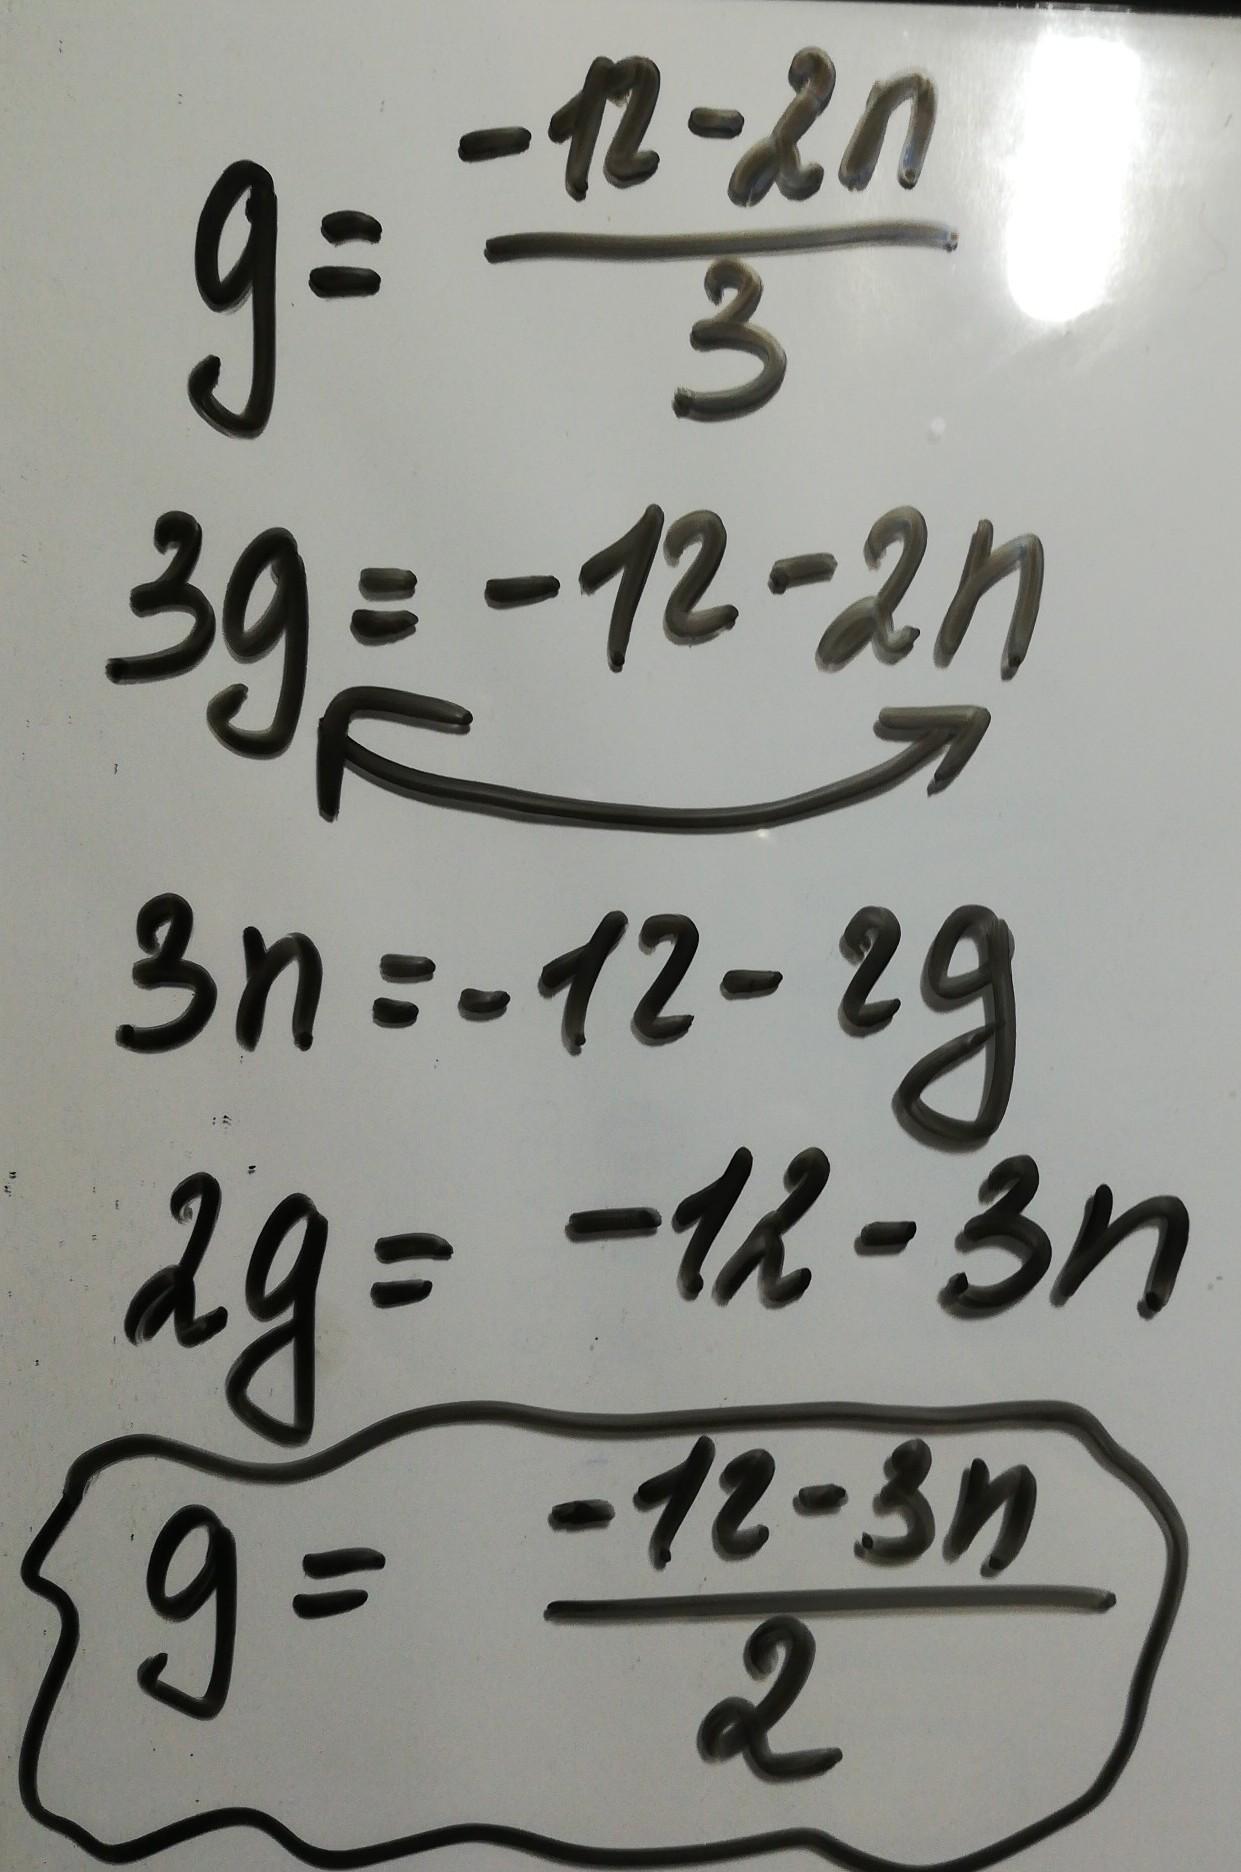 g = \frac{-12-2n}{3}
3g = -12-2n
3n = -12-2g
2g = -12-3n
g = \frac{-12-3n}{2}